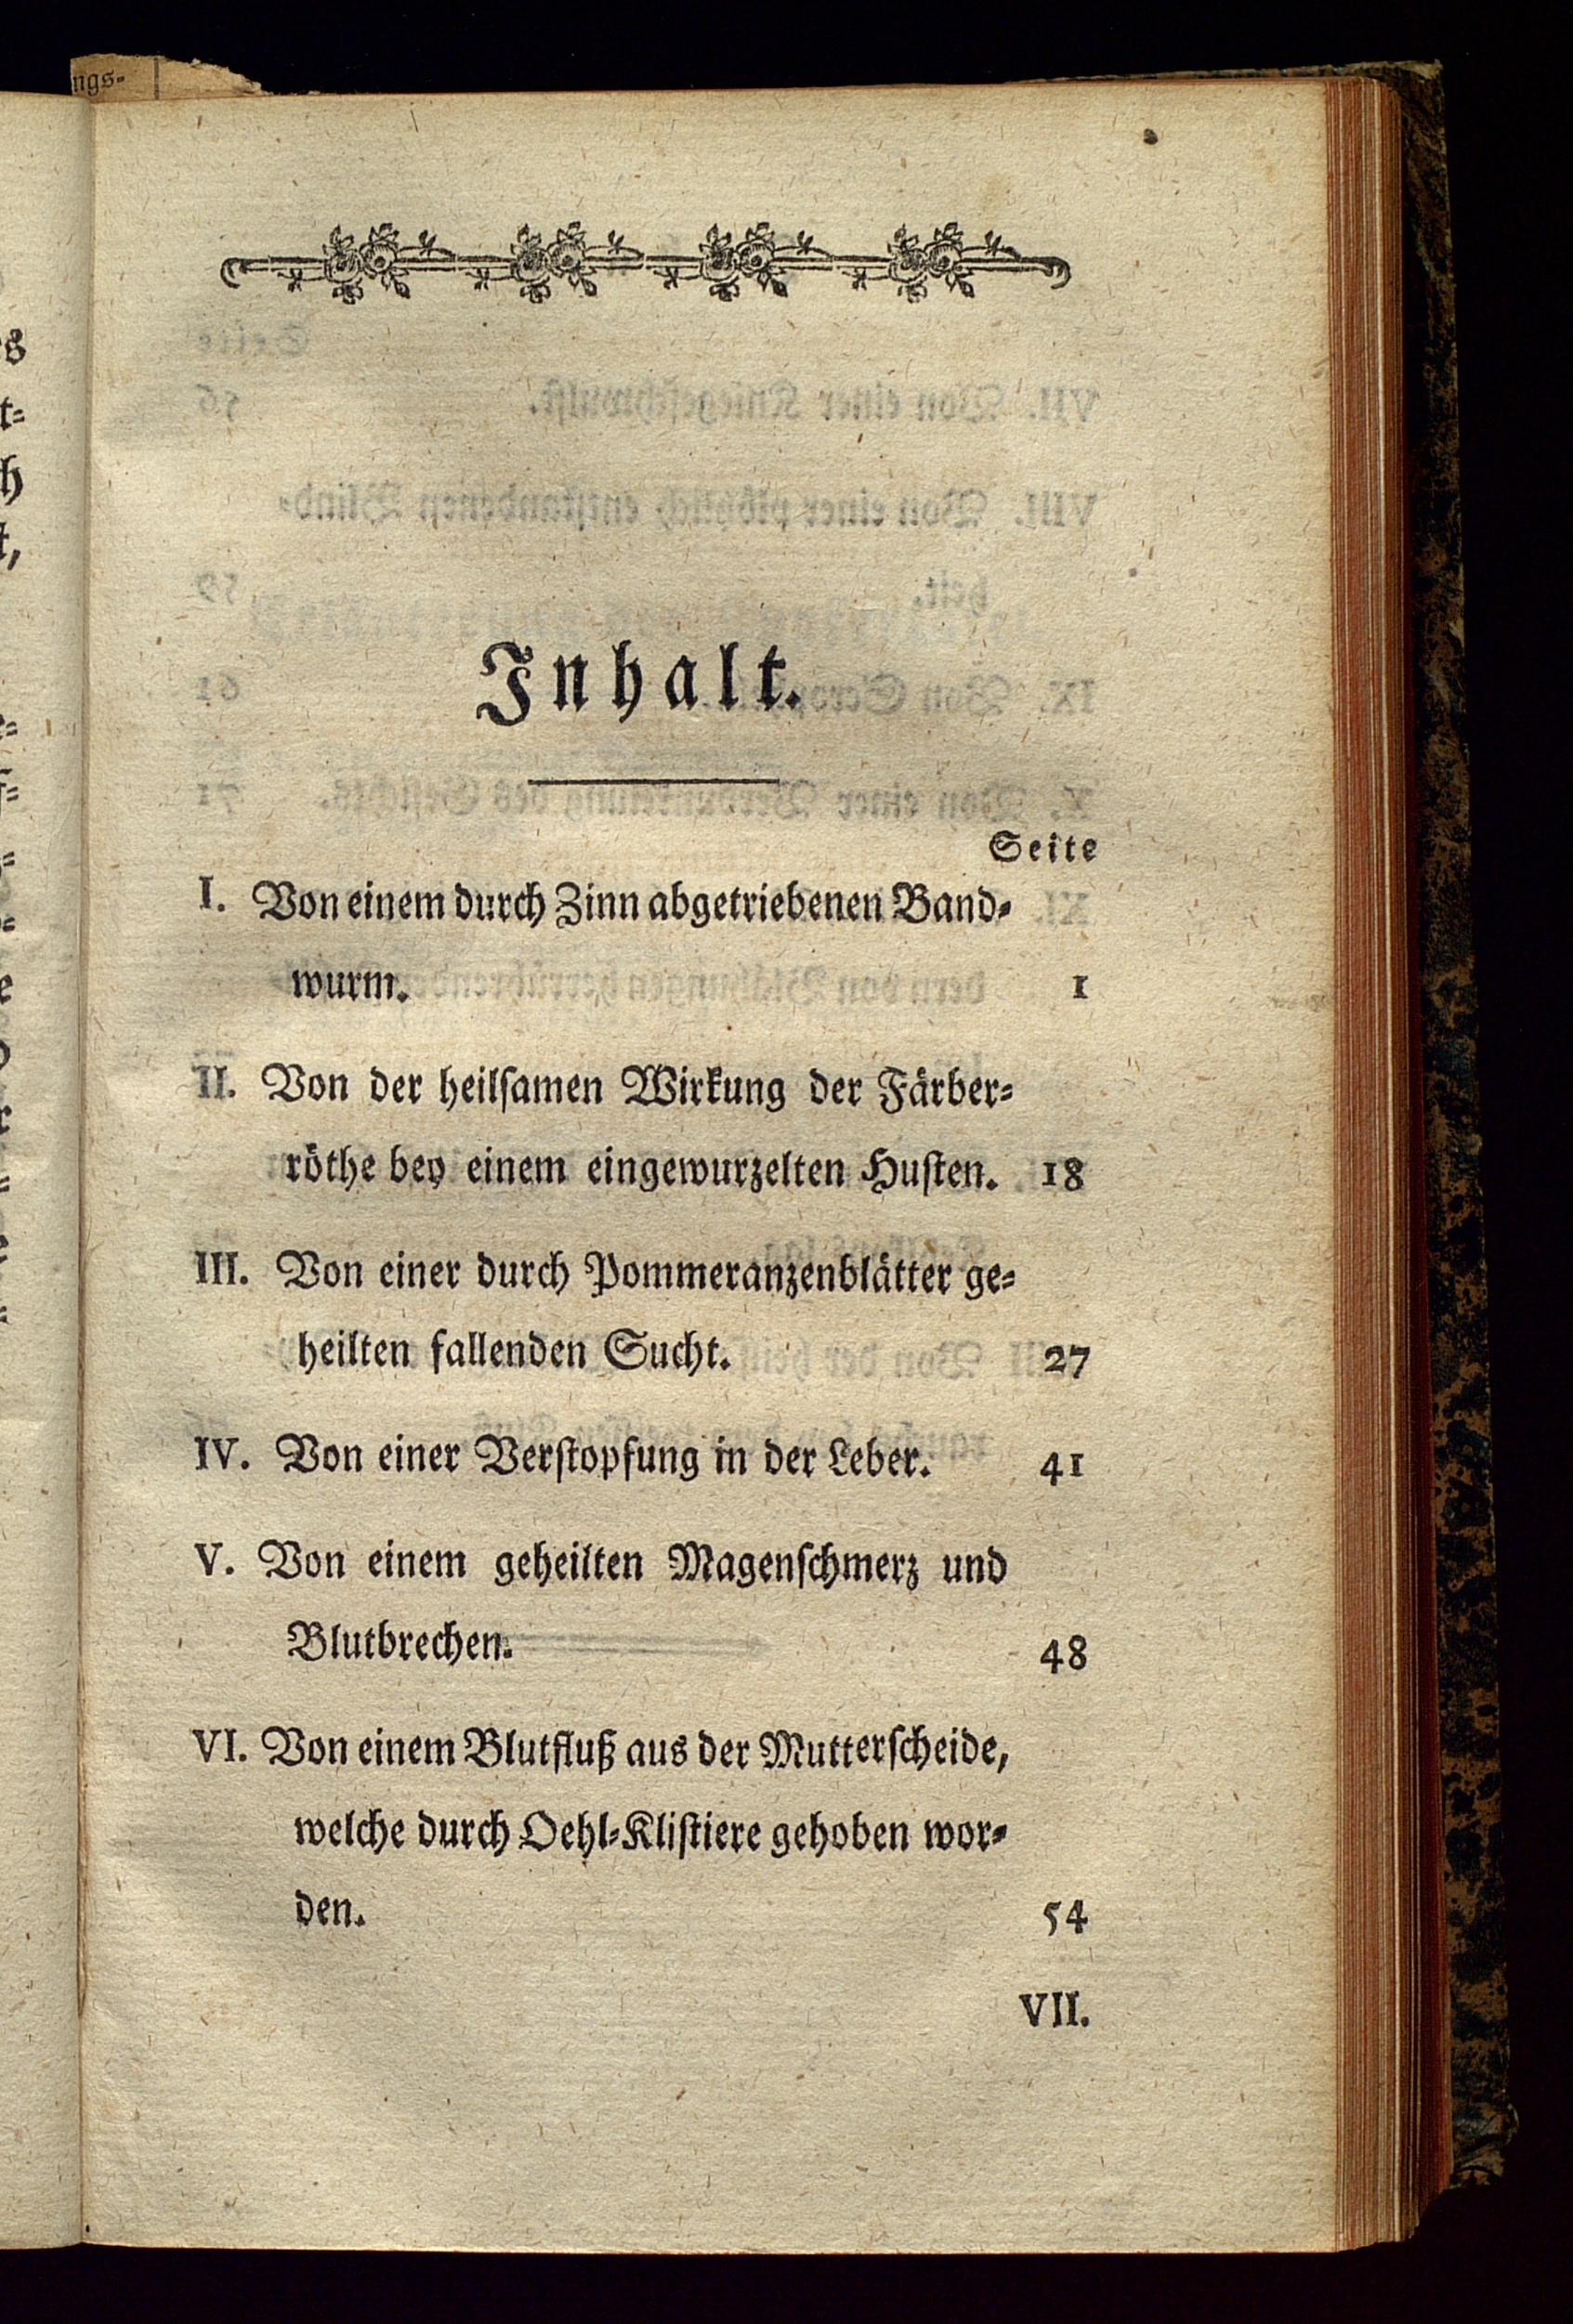 ngs-
Inhalt.
Seite
I. Von einem durch Zinn abgetriebenen Band-
wurm. 1
II. Von der heilsamen Wirkung der Färber-
röthe bey einem eingewurzelten Husten. 18
III. Von einer durch Pommeranzenblätter ge-
heilten fallenden Sucht. 27
IV. Von einer Verstopfung in der Leber. 41
V. Von einem geheilten Magenschmerz und
Blutbrechen. 48
VI. Von einem Blutfluß aus der Mutterscheide,
welche durch Oehl-Klistiere gehoben wor-
den. 54
VII.